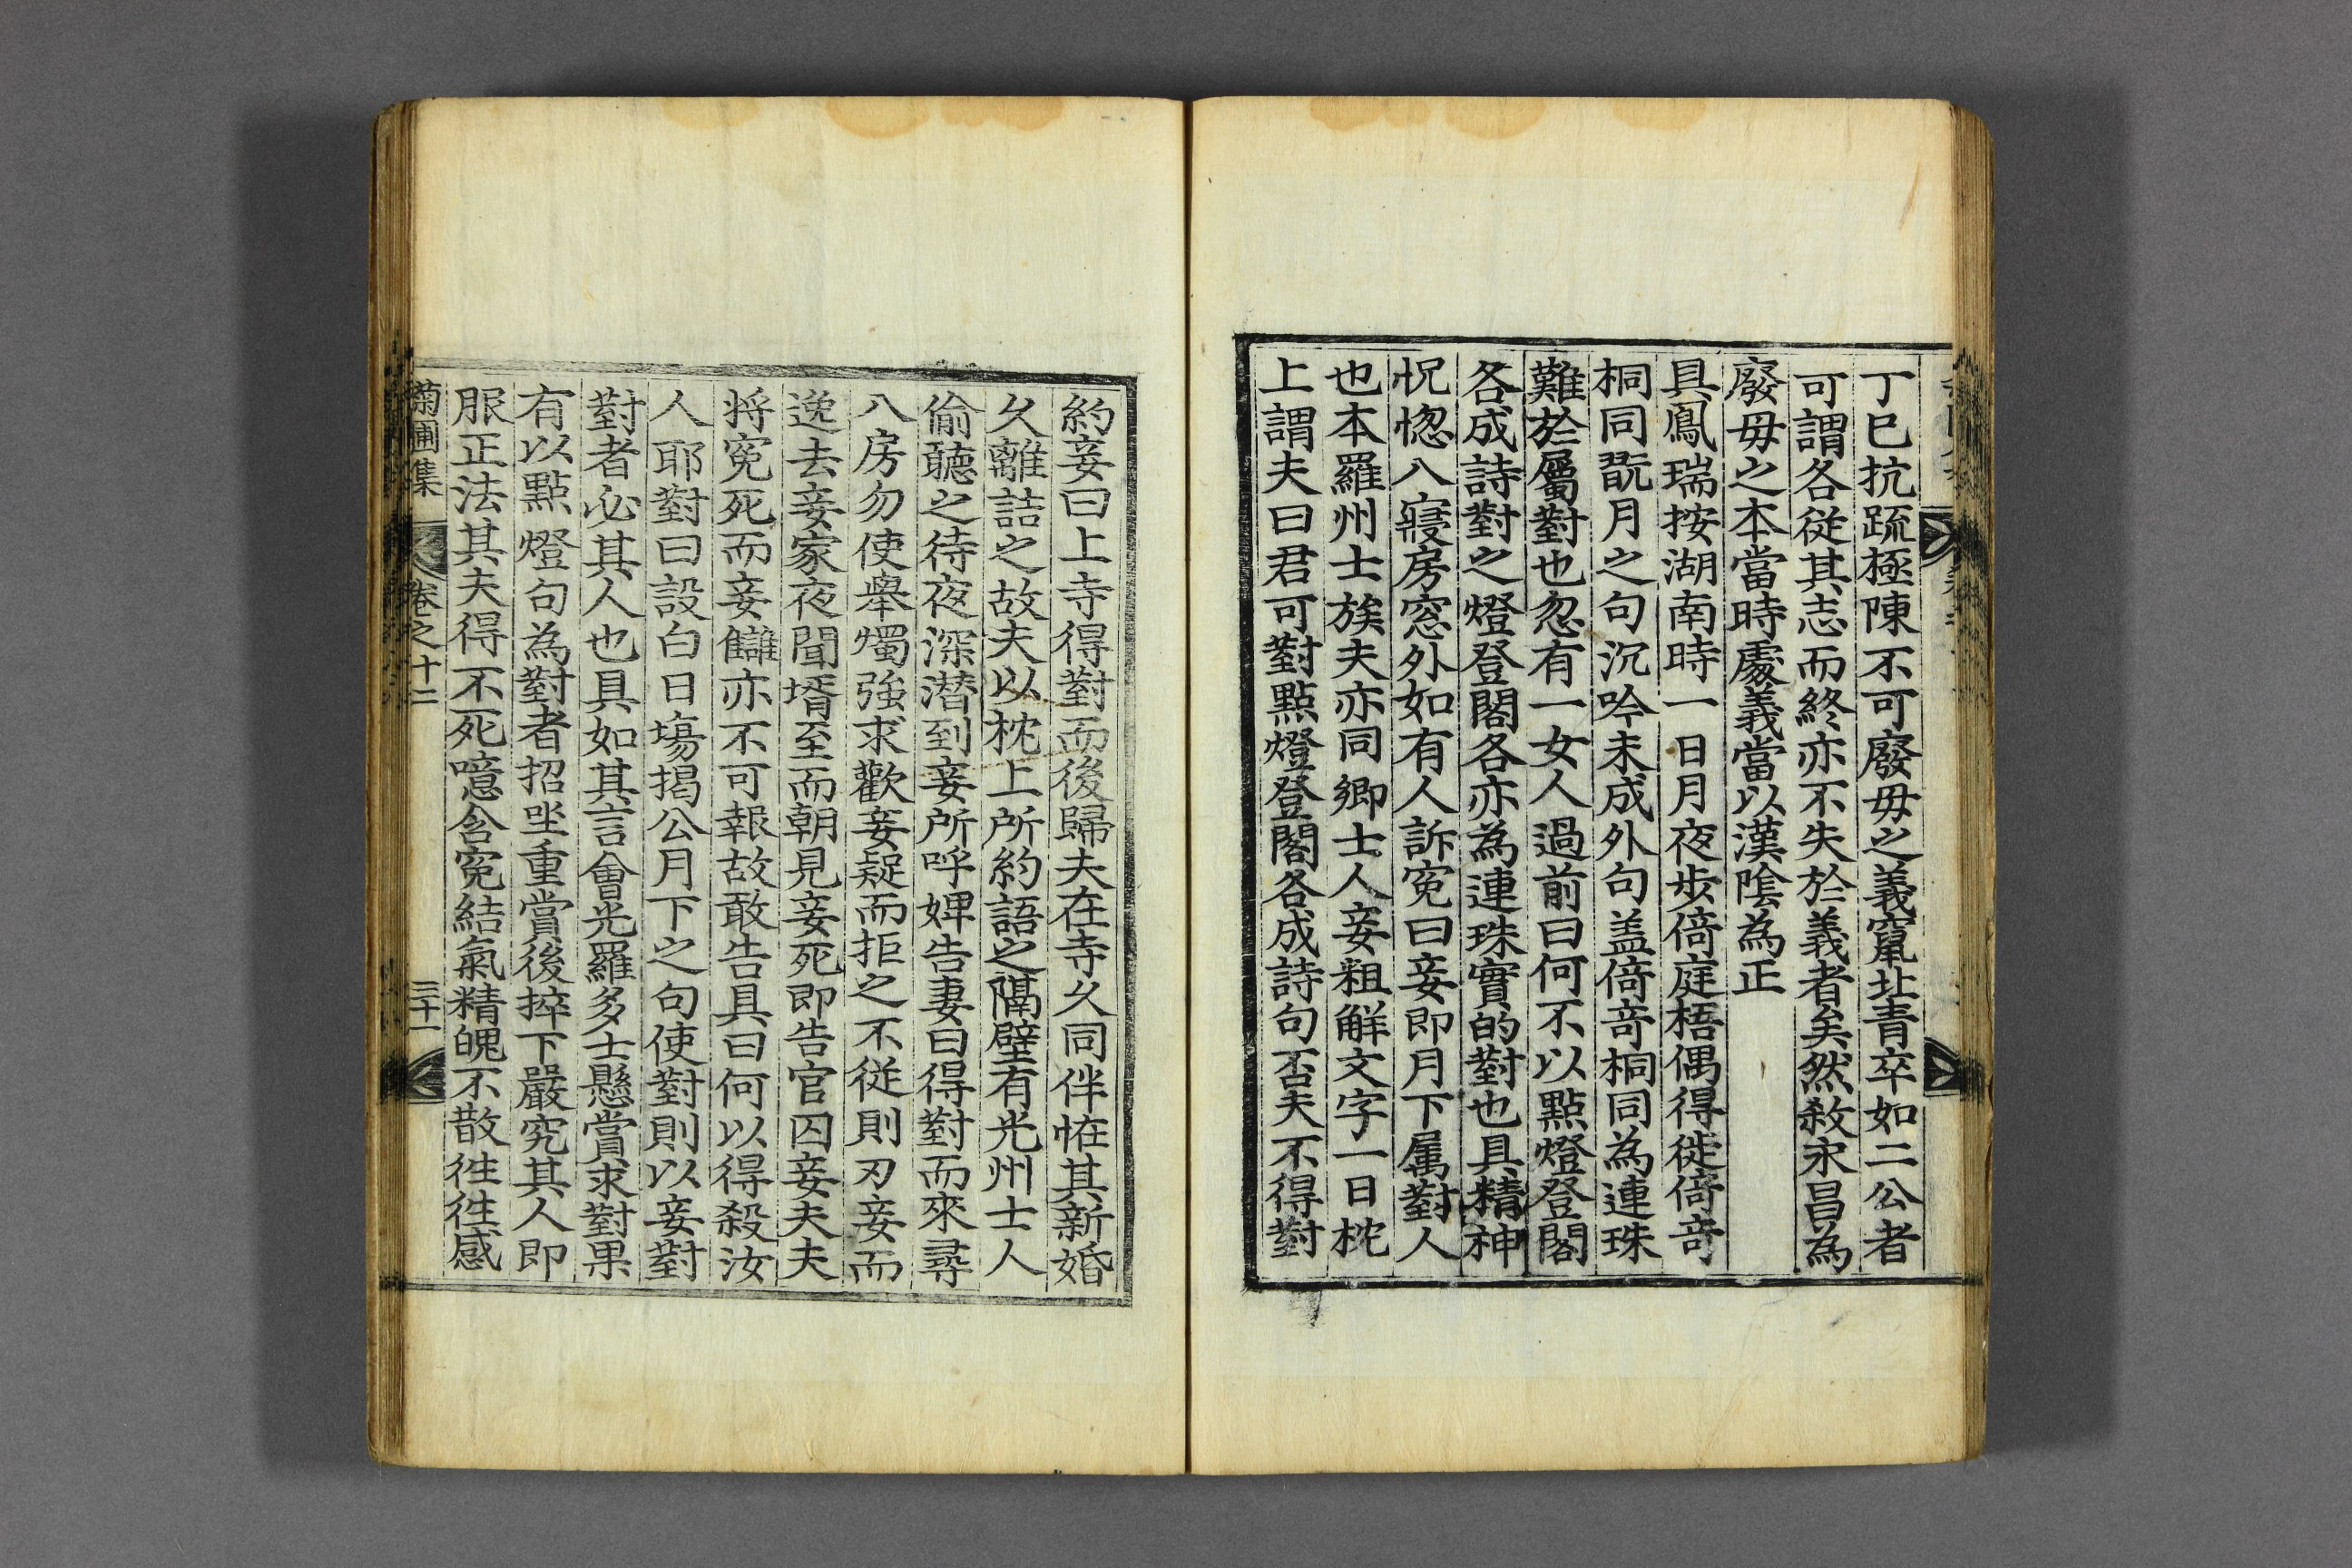 丁巳抗疏極陳不可廢毋之義竄北青卒如二公者
可謂各從其志而終亦不失於義者矣然敘永昌為
廢毋之本當時處義當以漢陰為正
具鳳瑞按湖南時一日月夜步倚庭梧偶得徙倚奇
桐同翫月之句沉吟未成外句盖倚奇桐同為連珠
難於屬對也忽有一女人過前曰何不以點燈登閣
各成詩對之燈登閣各亦為連珠實的對也具精神
怳惚入寢房窓外如有人訴寃曰妾即月下属對人
也本羅州士族夫亦同鄉士人妾粗解文字一日枕
上謂夫曰君可對點燈登閣各成詩句否夫不得對
約妾曰上寺得對而後歸夫在寺久同伴恠其新婚
久離詰之故夫以枕上所約語之隔壁有光州士人
偷聽之待夜深潜到妾所呼婢告妻曰得對而來尋
入房勿使舉燭強求歡妾疑而拒之不從則刃妾而
逸去妾家夜聞壻至而朝見妾死即告官囚妾夫夫
将寃死而妾讎亦不可報故敢告具曰何以得殺汝
人耶對曰設白日塲揭公月下之句使對則以妾對
對者必其人也具如其言會光羅多士懸賞求對果
有以點燈句為對者招坐重賞後捽下嚴究其人即
服正法其夫得不死噫含寃結氣精魄不散徃徃感
菊圃集
卷之十二
三十一